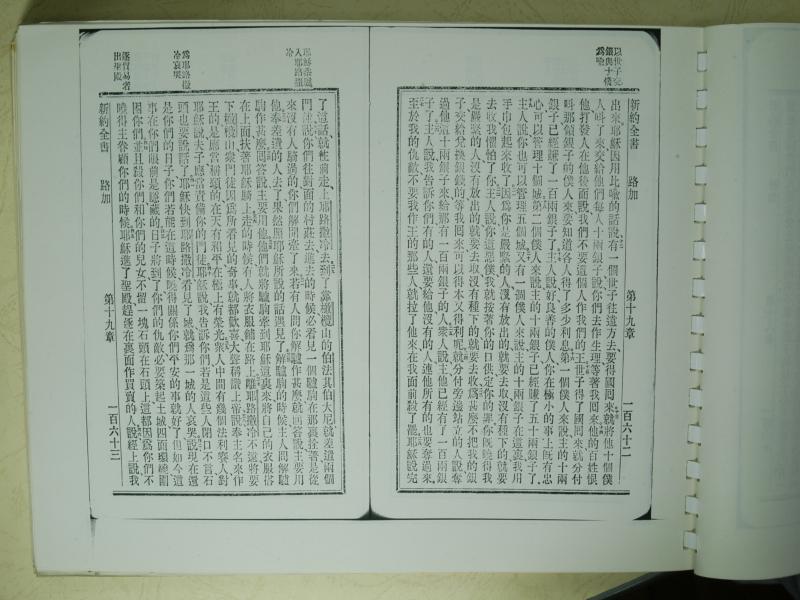 以世子交
銀與十僕
爲喻
新約全書　路加　第十九章　一百六十二
出來耶穌因用比喻的話說有一個世子往遠方去要得國囘來就將他十個僕
人叫了來交給他們每人十兩銀子說你們去作生理等著我囘來他的百姓恨
他打發人在他後面說我們不要這個人作我們的王世子得了國囘來就分付
叫那領銀子的僕人來要知道各人得了多少利息第一個僕人來說主的十兩
銀子已經賺了一百兩銀子了主人說好良善的僕人你在極小的事上旣有忠
心可以管理十個城第二個僕人來說主的十兩銀子已經賺了五十兩銀子了
主人說你也可以管理五個城又有一個僕人來說主的十兩銀子在這裏我用
手巾包起來收了因爲你是嚴緊的人沒有放出的就要去取沒有種下的就要
去收我懼怕了你主人說你這惡僕我就按著你的口供定你的罪你旣曉得我
是嚴緊的人沒有放出的就要去取沒有種下的就要去收爲甚麼不把我的銀
子交給兌換銀錢的等我囘來可以得本又得利呢就分付旁邊站立的人說奪
過他這十兩銀子來給那有一百兩銀子的人衆人說主他已經有了一百兩銀
子了主人說我告訴你們有的人還要給他沒有的人連他所有的也要奪過來
至於我的仇敵不要我作王的那些人就拉了他來在我面前殺了罷耶穌說完
耶穌乘驢
入耶路撒
冷
爲耶路撒
冷哀哭
逐貿易者
出聖殿
了這話就往前走上耶路撒冷去到了靠橄欖山的伯法其伯大尼就差遣兩個
門徒說你們往對面的村莊去進去的時候必看見一個驢駒在那裏拴著是從
來沒有人騎過的你們解開牽了來若有人問你解驢作甚麼就囘答說主要用
他奉差遣的人去了果然照耶穌所說的話遇見了解驢駒的時候主人問解驢
駒作甚麼囘答說主要用他他們就將驢駒牽到耶穌這裏來將自己的衣服搭
在上面扶著耶穌騎上走的時候有人將衣服鋪在路上離耶路撒冷不遠將要
下橄欖山衆門徒因爲所看見的奇事就都歡喜大聲稱讚上帝說奉主名來作
王的是應當稱頌的在天有和平在極上有榮光衆人中間有幾個法利賽人對
耶穌說夫子應當責備你的門徒耶穌說我告訴你們若是這些人閉口不言石
頭也要說話了耶穌快到耶路撒冷看見了城就爲那一城的人哀哭說現在還
是你們的日子你們若能在這時候曉得關係你們平安的事就好了但如今這
事在你們眼前是隱藏的日子將到了你們的仇敵必要築起土城四面環繞圍
困你們並且殺你們和你們的兒女不留一塊石頭在石頭上這都因爲你們不
曉得主眷顧你們的時候耶穌進了聖殿趕逐在裏面作買賣的人說經上說我
新約全書　路加　第十九章　一百六十三